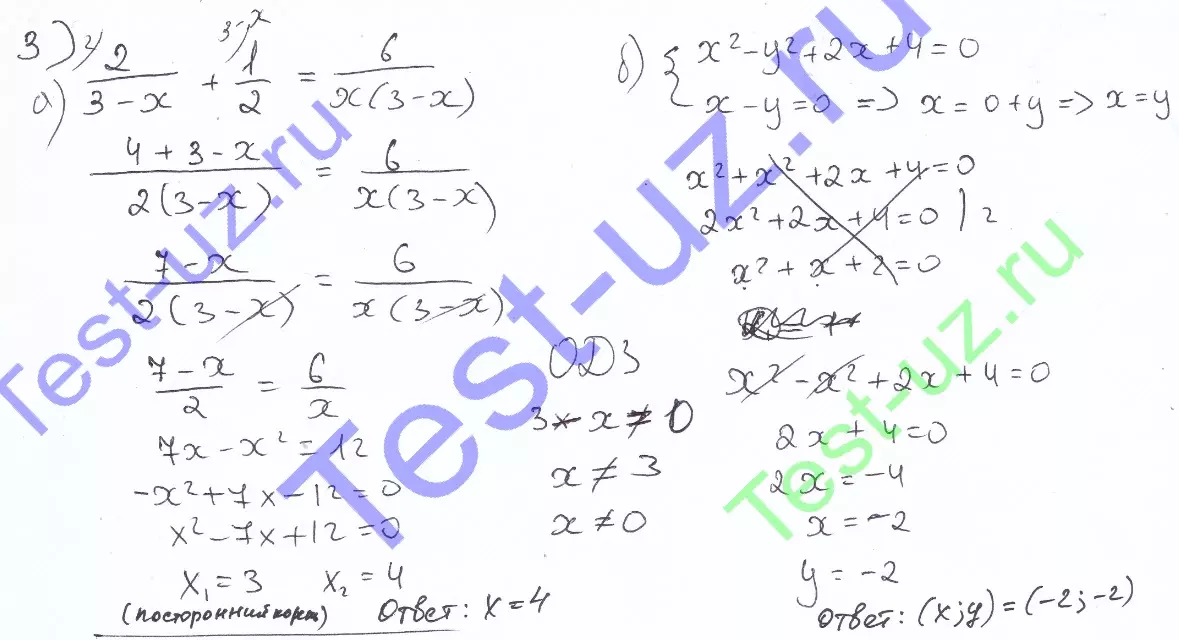 3) 2) 2/(3-x) + 3-x) 1/2 = 6/(x(3-x))
а)
(4+3-x)/(2(3-x)) = 6/(x(3-x))
(7-x)/(2(3-x)) = 6/(x(3-x))
(7-x)/2 = 6/x
7x-x² = 12
-x²+7x-12=0
x²-7x+12=0
x₁=3 x₂=4
(посторонний корень) Ответ: x=4
ОДЗ
3-x≠0
x≠3
x≠0
б) { x²-y²+2x+4=0
x-y=0 => x=0+y => x=y
x²+x²+2x+4=0
2x²+2x+4=0 | 2
x²+x+2=0
x²-x²+2x+4=0
2x+4=0
2x=-4
x=-2
y=-2
Ответ: (x;y)=(-2;-2)
Test-uz.ru
Test-uz.ru
Test-uz.ru